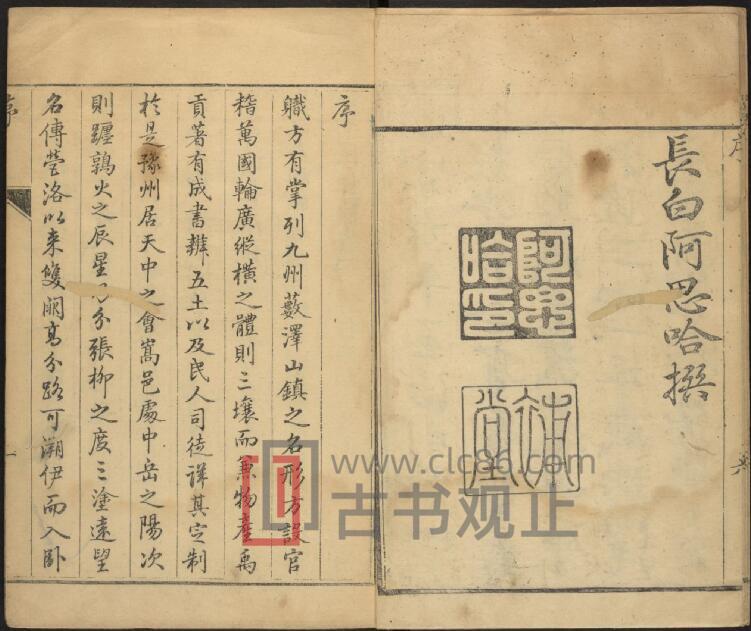 長白阿思哈撰
阿思哈印
序
職方有掌列九州藪澤山鎮之名形方設官
稽萬國輪廣縱橫之體則三壤而兼物產禹
貢著有成書辨五土以及民人司徒詳其定制
於是豫州居天中之會嵩邑處中岳之陽次
則躔鶉火之辰星分張柳之度三塗遠望
名傳瑩洛以来雙闕高分路可溯伊而入卧
序
一
序
六
www.clc86.com
古书观止